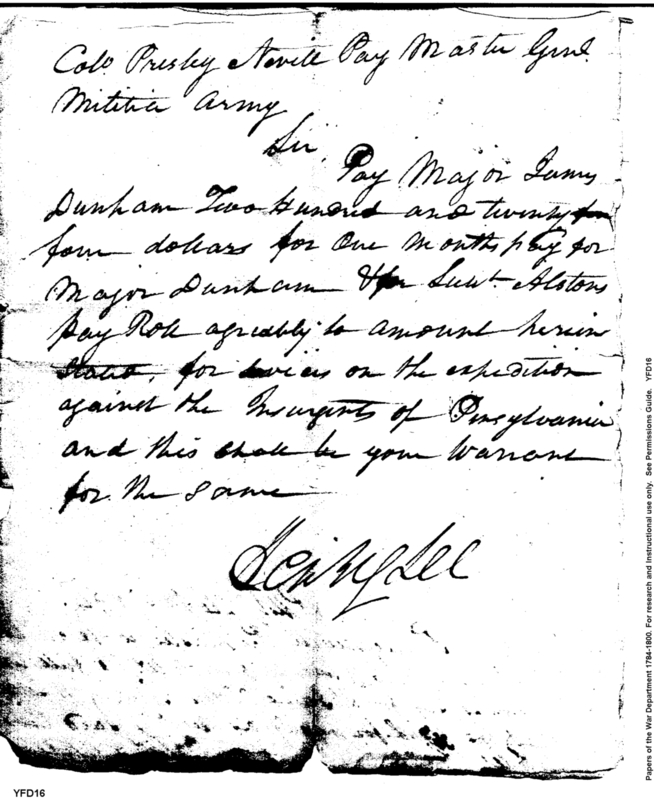 Colo Presley Nevill Pay Master Genl.
Militia Army
Sir,
Pay Major James
Dunham Two Hundred and twenty
four dollars for One Months pay for
Major Dunham & for Lieut. Alstons
Pay Roll agreably to amount herein
stated, for services on the expedition
against the Insurgents of Pensylvania
and this shall be your Warrant
for the same
Henry Lee
Papers of the War Department 1784-1800. For research and Instructional use only. See Permissions Guide. YFD16
YFD16